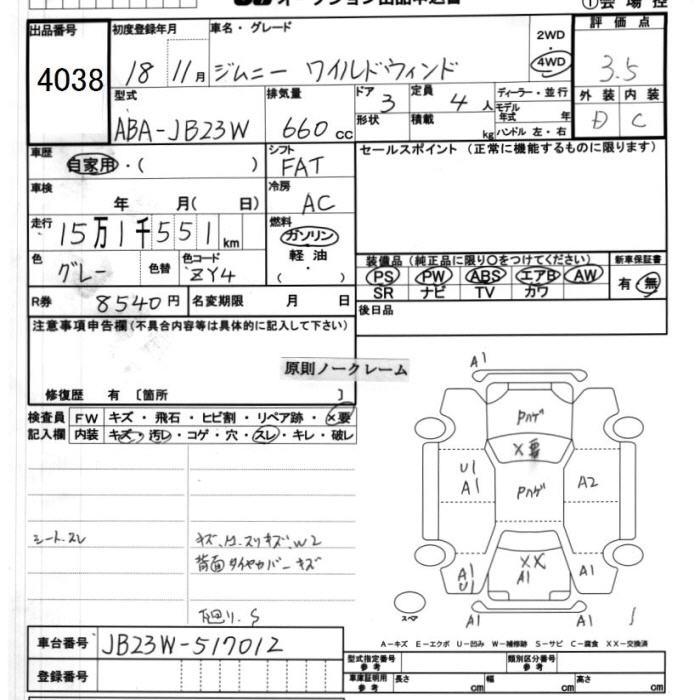 オークション出品申込書
① 会 場 控
出品番号
4038
初度登録年月
18 11 月
車名・グレード
ジムニー ワイルドウィンド
2WD
・
4WD
評 価 点
3.5
外 装 内 装
D C
型式
ABA-JB23W
排気量
660 cc
ドア 3
形状
定員 4 人
積載 kg
ディーラー・並 行
モデル年式 年
ハンドル 左・右
車歴
自家用・( )
シフト
FAT
セールスポイント(正常に機能するものに限ります)
車検
年 月( 日)
冷房
AC
走行
15万1千551 km
燃料
ガソリン
軽 油
( )
色
グレー
色替
色コード
ZY4
装備品(純正品に限り○をつけてください)
PS PW ABS エアB AW
SR ナビ TV カワ
新車保証書
有・無
R券
8540 円
名変期限 月 日
後日品
注意事項申告欄(不具合内容等は具体的に記入して下さい)
原則ノークレーム
修復歴 有 〔箇所 〕
検査員
記入欄
FW キズ・飛石・ヒビ割・リペア跡・×要
内装 キズ・汚レ・コゲ・穴・スレ・キレ・破レ
A1
Pハゲ
×要
U1
A1
Pハゲ
A2
××
A1
A1
U1
A1
A1
A1
スペア
S
シート.スレ
W2
背面タイヤカバー キズ
下廻り.S
車台番号
JB23W-517012
登録番号
A-キズ E-エクボ U-凹み W-補修跡 S-サビ C-腐食 XX-交換済
型式指定番号
参 考
類別区分番号
参 考
車庫証明用
参 考
長さ cm 幅 cm 高さ cm